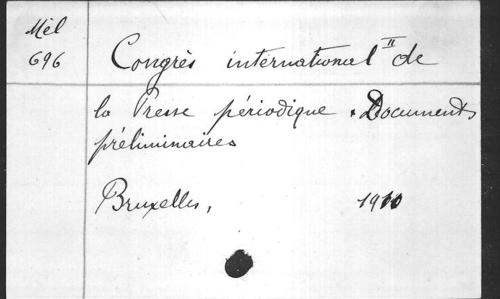 Mél
696
Congrès international II de
la Presse périodique. Documents
préliminaires
Bruxelles, 1910